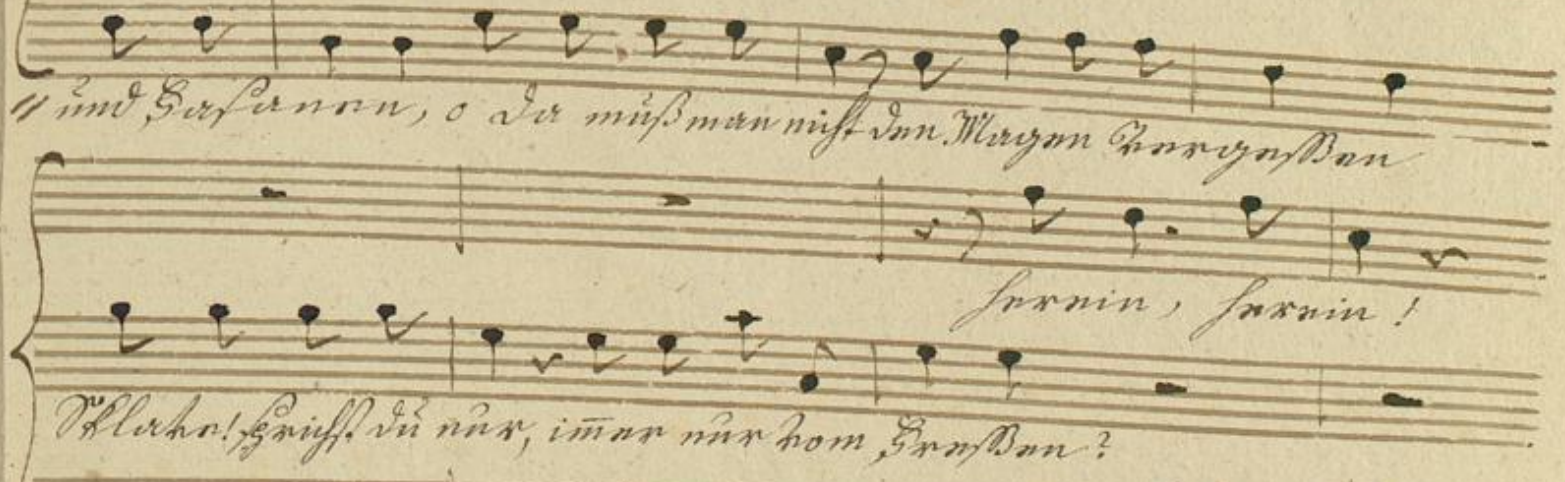 und Fasanen, o da muß man nicht den Magen vergeßen
herein, herein!
Sklave! sprichst du nur, im̅er nur vom Freßen?